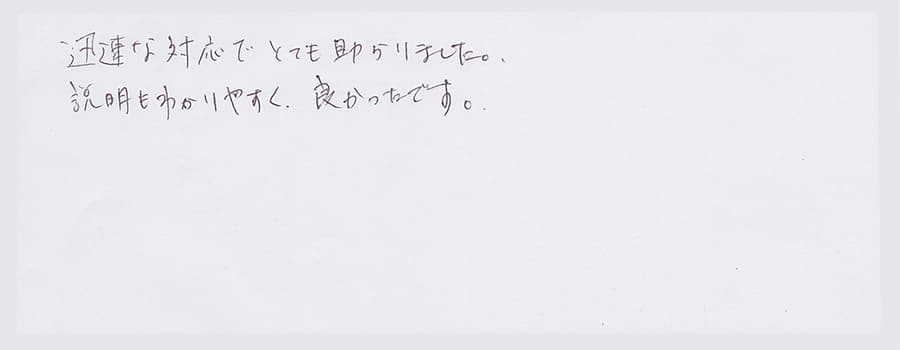 迅速な対応でとても助かりました。
説明もわかりやすく、良かったです。